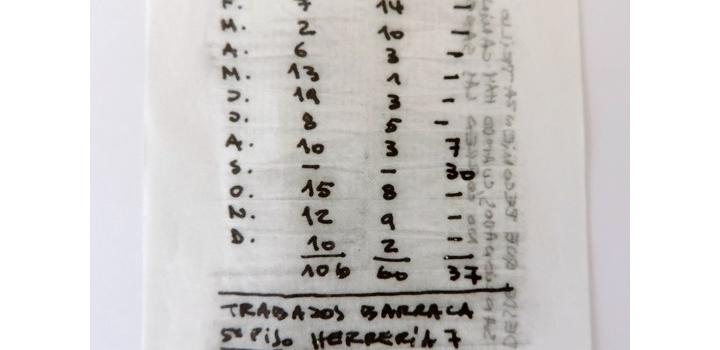 F. 7 14 -
M. 2 10 -
A. 6 3 -
M. 13 1 -
J. 19 3 -
J. 8 5 -
A. 10 3 7
S. - - 30
O. 15 8 -
N. 12 9 -
D. 10 2 -
106 60 37
TRABAJOS BARRACA
5º PISO HERRERÍA 7